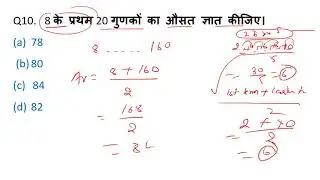 Q10. 8 के प्रथम 20 गुणकों का औसत ज्ञात कीजिए।
(a) 78
(b) 80
(c) 84
(d) 82
8 ...... 160
Av = 8 + 160
2
= 168
2
= 84
2 से 10
= 30
5
= 6
1st km + last km
2
2 + 10
2
= 6